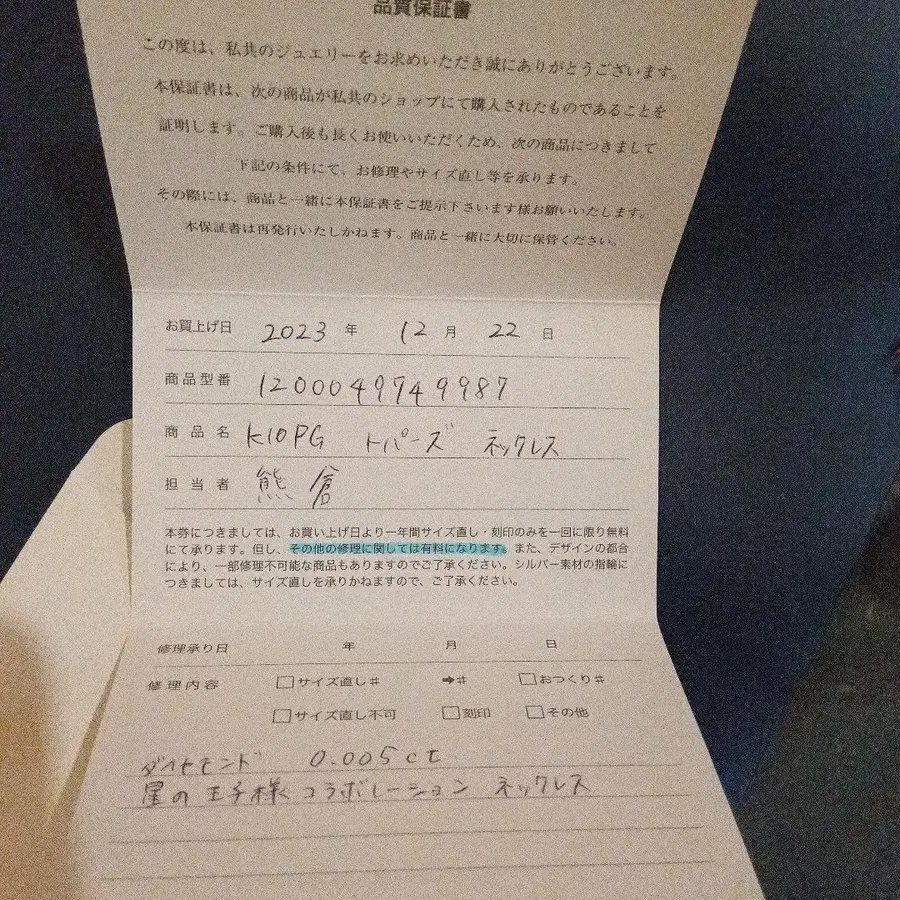 品質保証書
この度は、私共のジュエリーをお求めいただき誠にありがとうございます。
本保証書は、次の商品が私共のショップにて購入されたものであることを
証明します。ご購入後も長くお使いいただくため、次の商品につきまして
下記の条件にて、お修理やサイズ直し等を承ります。
その際には、商品と一緒に本保証書をご提示下さいます様お願いいたします。
本保証書は再発行いたしかねます。商品と一緒に大切に保管ください。
お買上げ日 2023 年 12 月 22 日
商品型番 1200049749987
商品名 K10PG トパーズ ネックレス
担当者 熊倉
本券につきましては、お買い上げ日より一年間サイズ直し・刻印のみを一回に限り無料
にて承ります。但し、その他の修理に関しては有料になります。また、デザインの都合
により、一部修理不可能な商品もありますのでご了承ください。シルバー素材の指輪に
つきましては、サイズ直しを承りかねますので、ご了承ください。
修理承り日 年 月 日
修理内容 □サイズ直し# ➔# □おつくり#
□サイズ直し不可 □刻印 □その他
ダイヤモンド 0.005ct
星の王子様コラボレーション ネックレス